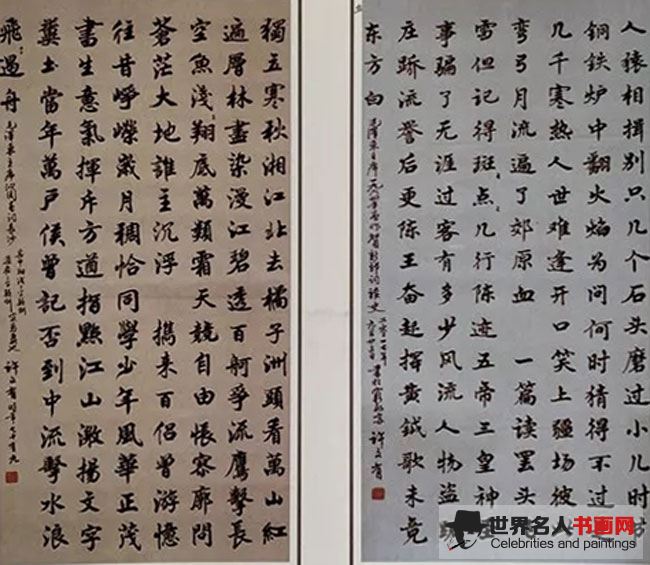 人猿相揖别只几个石头磨过小儿时
铜铁炉中翻火焰为问何时猜得不过
几千寒热人世难逢开口笑上疆场彼
弯弓月流遍了郊原血 一篇读罢头
雪但记得斑:点:几行陈迹五帝三皇神
事骗了无涯过客有多少风流人物盗
庄蹻流誉后更陈王奋起挥黄钺歌未竟
东方白
毛泽东主席一九六四年春作贺新郎词读史
獨立寒秋湘江北去橘子洲頭看萬山紅
遍層林盡染漫江碧透百舸爭流鷹擊長
空魚淺:翔底萬類霜天競自由悵寥廓問
蒼茫大地誰主沉浮 攜来百侶曾游憶
往昔崢嶸歲月稠恰同學少年風華正茂
書生意氣揮斥方遒指點江山激揚文字
糞土當年萬戶侯曾記否到中流擊水浪
飛遏舟
毛澤东主席沁园春词長沙
世界名人书画网
Celebrities and paintings